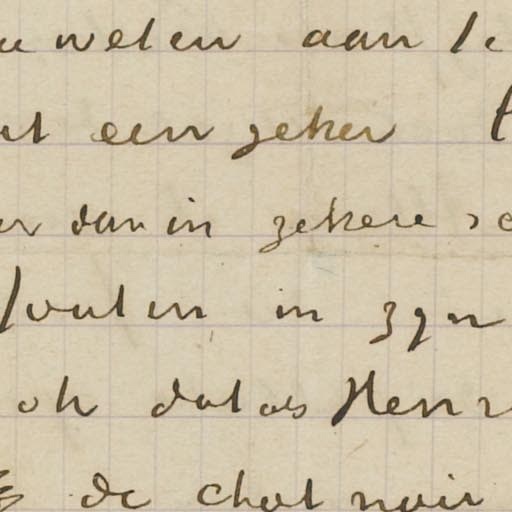 weten aan
een zeker
dan in zekere
fouten in zyn
ook dat as Henr
de chat noir